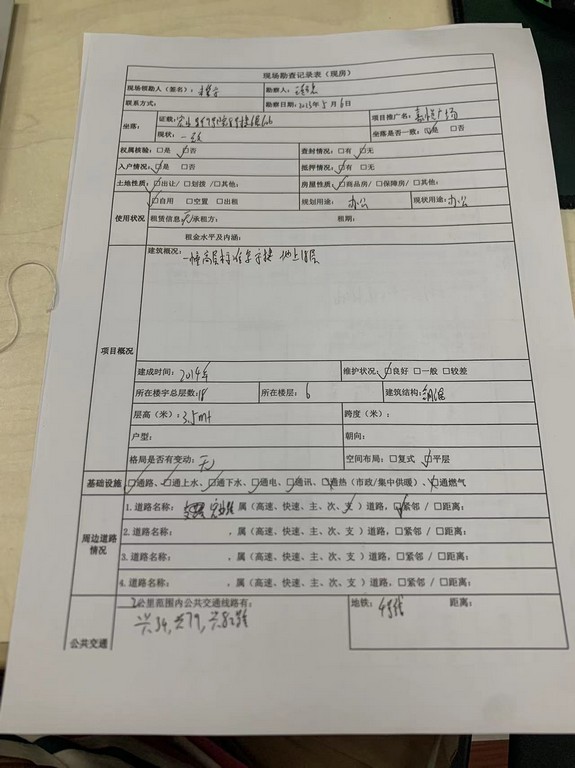 现场勘查记录表（现房）
现场领勘人（签名）： 勘察人：
联系方式： 勘察日期：2023年5月6日
坐落： 证载： 项目推广名：嘉悦广场
现状：一致 坐落是否一致：☑是 □否
权属核验：□是 ☑否 查封情况：□有 ☑无
入户情况：☑是 □否 抵押情况：☑有 □无
土地性质：☑出让/ □划拨 /□其他： 房屋性质：☑商品房/ □保障房/ □其他：
使用状况 ☑自用 □空置 □出租 规划用途：办公 现状用途：办公
租赁信息：无 承租方： 租期：
租金水平及内涵：
项目概况 建筑概况：一幢高层标准写字楼 地上18层
建成时间：2014年 维护状况：☑良好 □一般 □较差
所在楼宇总层数：18 所在楼层：6 建筑结构：钢混
层高（米）：3.5m 跨度（米）：
户型： 朝向：
格局是否有变动：无 空间布局：□复式 ☑平层
基础设施 ☑通路、☑通上水、☑通下水、☑通电、☑通讯、☑通热（市政/集中供暖）、☑通燃气
周边道路情况 1. 道路名称： ，属（高速、快速、主、次、支）道路，☑紧邻 / □距离：
2. 道路名称： ，属（高速、快速、主、次、支）道路，□紧邻 / □距离：
3. 道路名称： ，属（高速、快速、主、次、支）道路，□紧邻 / □距离：
4. 道路名称： ，属（高速、快速、主、次、支）道路，□紧邻 / □距离：
公共交通 2公里范围内公共交通线路有： 地铁：4号线 距离：
兴34，兴79，兴82路